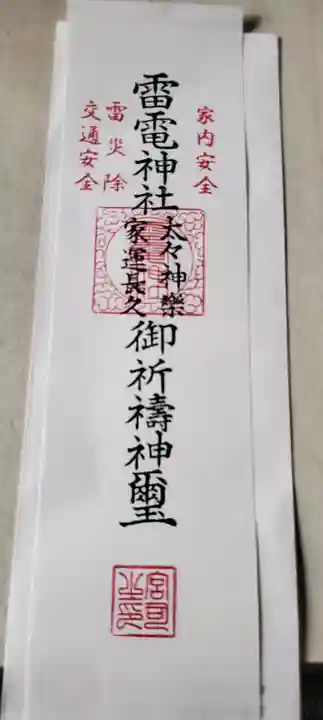 家内安全
雷電神社
太々神樂
家運長久
御祈禱神璽
雷災除
交通安全
宮司之印